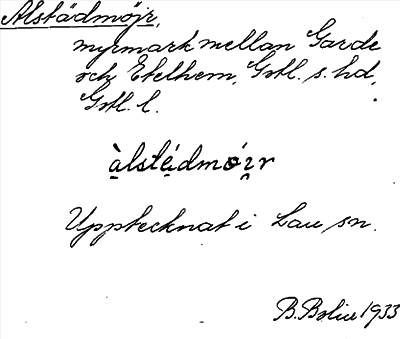 Alstädmöjr,
myrmark mellan Garde
och Etelhem, Gotl. s. hd,
Gotl. l.
àlstédmóɪr
Upptecknat i Lau sn.
B. Bolin 1933